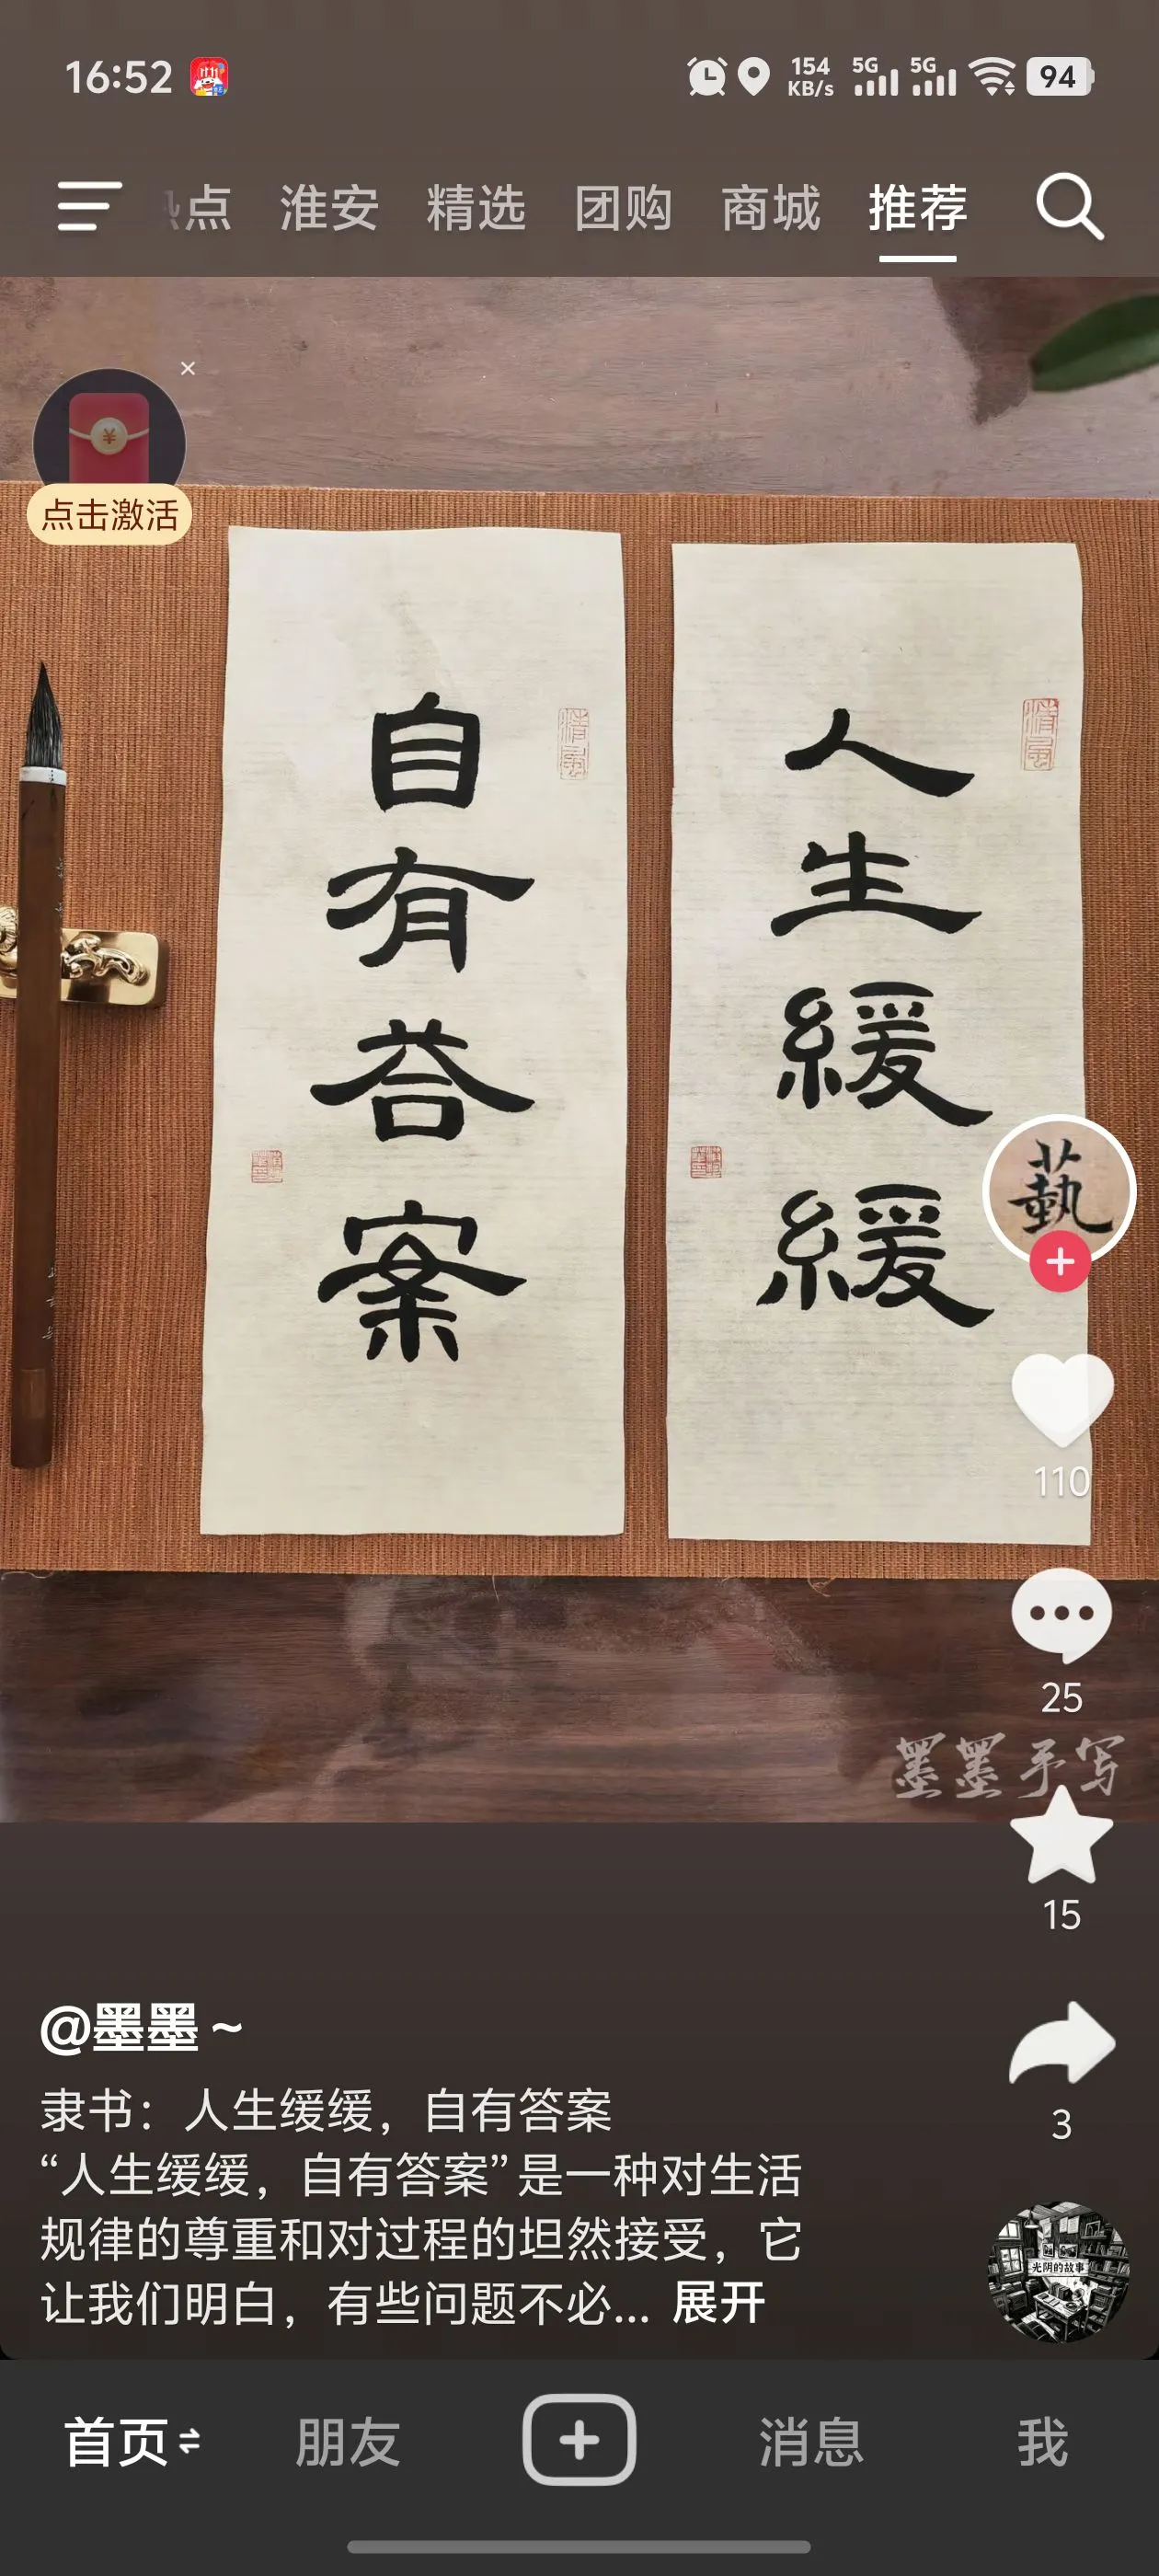 16:52
154 KB/s 5G 5G 94
点 淮安 精选 团购 商城 推荐
¥
点击激活
人生緩緩
自有荅案
藝
110
25
墨墨手写
15
@墨墨~
隶书：人生缓缓，自有答案
“人生缓缓，自有答案”是一种对生活
规律的尊重和对过程的坦然接受，它
让我们明白，有些问题不必... 展开
3
光阴的故事
首页 朋友 消息 我